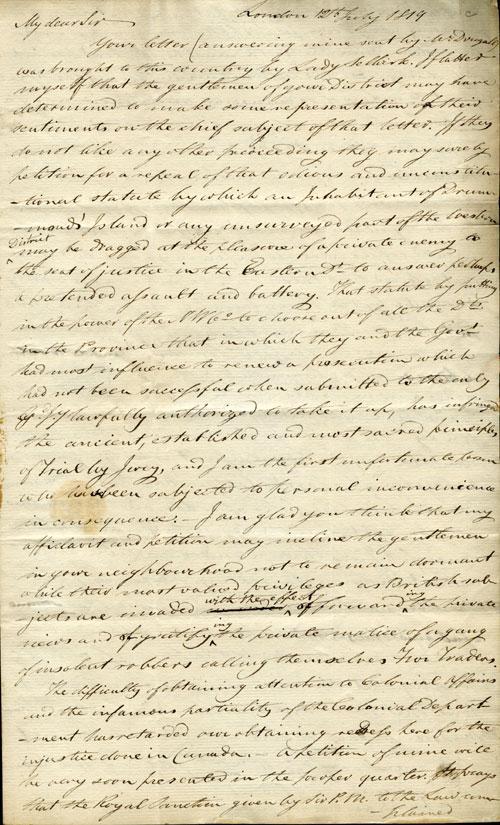 London 12th July 1819
My dear Sir
Your letter (answering mine sent by McDougall)
was brought to this country by Lady Selkirk. I flatter
myself that the gentlemen of your District may have
determined to make some representation of their
sentiments on the chief subject of that letter. If they
do not like any other proceeding they may surely
petition for a repeal of that odious and unconstitu-
-tional statute by which an Inhabitant of Drum-
-mond's Island or any unsurveyed part of the Western
District
may be dragged at the pleasure of a private enemy to
the seat of justice in the Eastern Dt. to answer perhaps
a pretended assault and battery. That statute by putting
in the power of the N W Co. to choose out of all the Dts.
in the Province that in which they and the Govt.
had most influence to renew a prosecution which
had not been successful when submitted to the only
lawfully authorized to take it up, has infringed
the ancient, established and most sacred principles
of Trial by Jury, and I am the first unfortunate person
who has been subjected to personal inconvenience
in consequence:- I am glad you think that my
affidavit and petition may incline the gentlemen
in your neighbourhood not to remain dormant
while their most valued privileges as British sub-
-jects are invaded with the effect of forwarding the private
views and gratifying the private malice of a gang
of insolent robbers calling themselves Fur Traders.
The difficulty of obtaining attention to Colonial affairs
and the infamous partiality of the Colonial Depart-
-ment has retarded our obtaining redress here for the
injustice done in Canada. A petition of mine will
be very soon presented in the proper quarter. It prays
that the Royal Sanction given by Sir P. M. to the Law com-
-plained